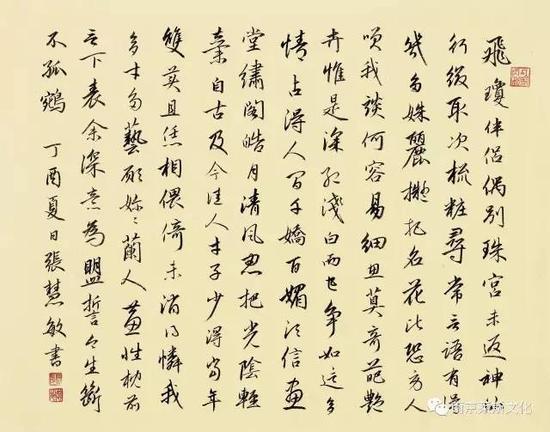 飛瓊伴侣偶别珠宫未返神仙
行缀取次梳粧尋常言语有得
幾多姝麗擬把名花比恐旁人
笑我談何容易细思算奇葩艷
卉惟是深红浅白而已争如這多
情占得人間千嬌百媚须信畫
堂繡閣皓月清風忍把光陰輕
棄自古及今佳人才子少得當年
雙美且恁相偎倚未消得憐我
多才多藝願妳々蘭人蕙性枕前
言下表余深意為盟誓今生斷
不孤鴛 丁酉夏日張慧敏書